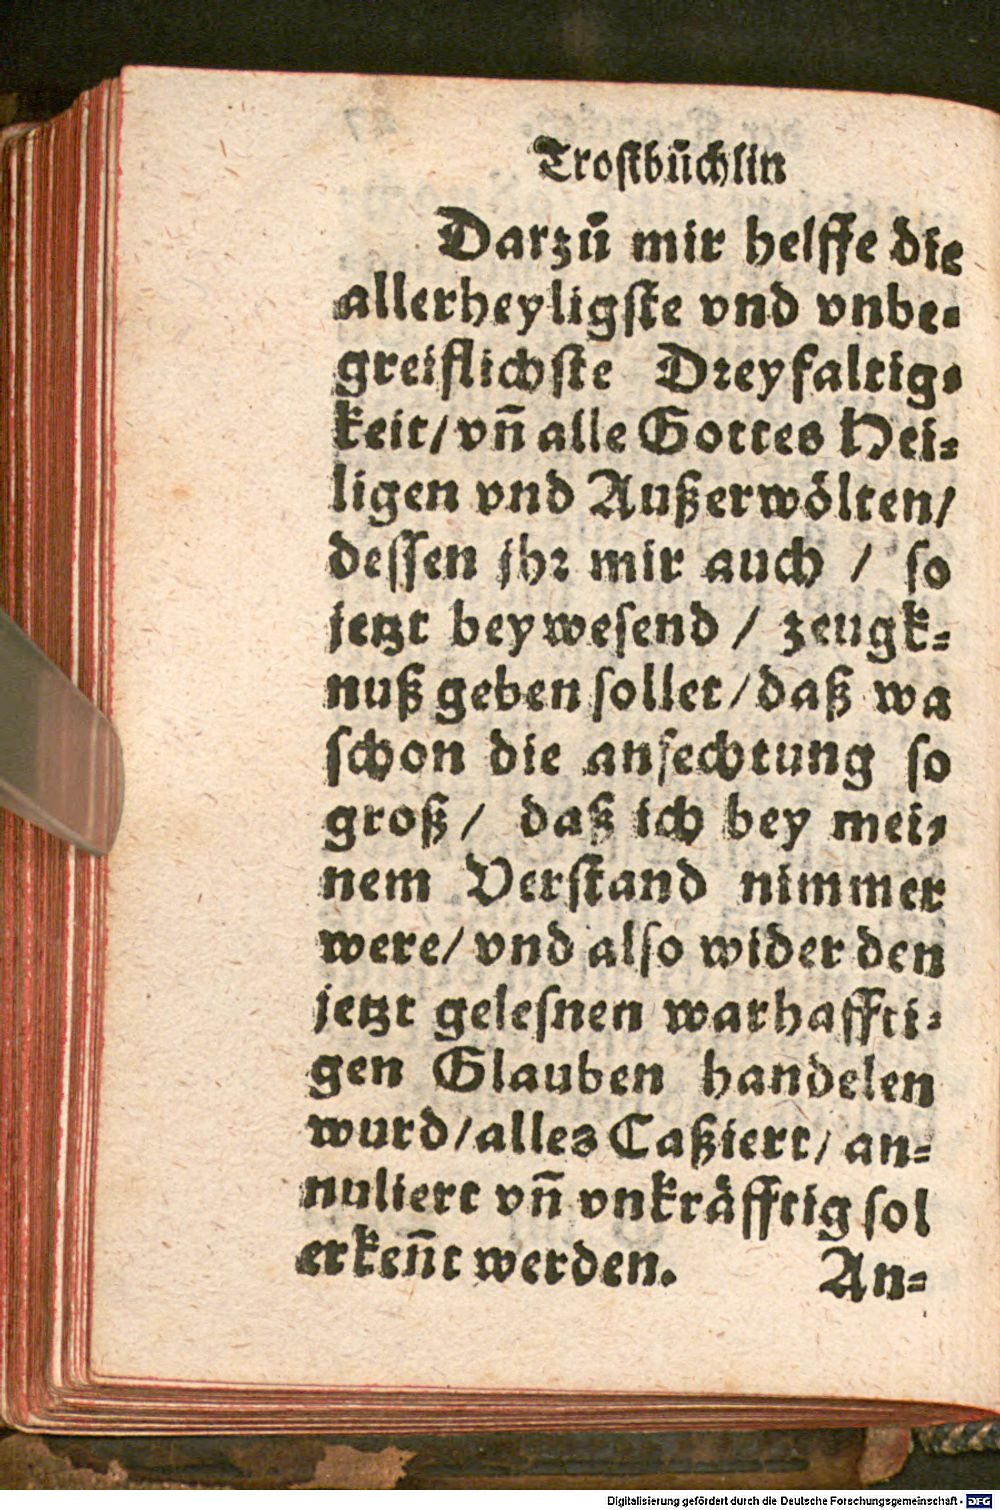 Trostbůchlin
Darzů mir helffe die
allerheyligste vnd vnbe-
greiflichste Dreyfaltig-
keit/ vñ alle Gottes Hei-
ligen vnd Außerwölten/
dessen jhr mir auch / so
jetzt beywesend / zeugk-
nuß geben sollet/ daß wa
schon die anfechtung so
groß/ daß ich bey mei-
nem Verstand nimmer
were/ vnd also wider den
jetzt gelesnen warhaffti-
gen Glauben handelen
wurd/ alles Caßiert/ an-
nuliert vñ vnkräfftig sol
erkeñt werden. An-
Digitalisierung gefördert durch die Deutsche Forschungsgemeinschaft - DFG